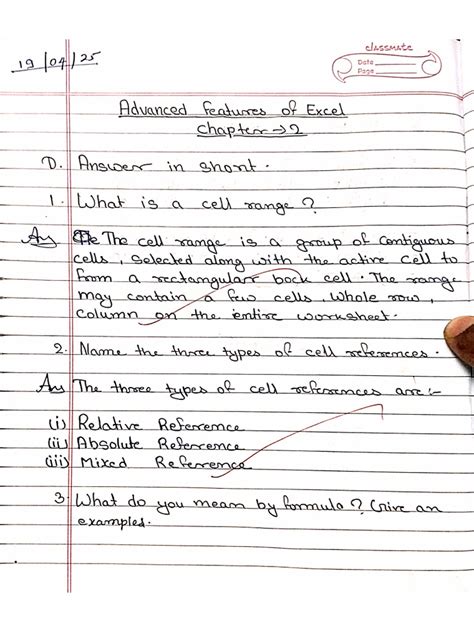 classmate
Date
Page
19/04/25
Advanced features of Excel
Chapter → 2
D. Answer in short.
1. What is a cell range?
Ans The cell range is a group of contiguous
cells, selected along with the active cell to
from a rectangular bock cell. The range
may contain a few cells, whole row,
column on the entire worksheet.
2. Name the three types of cell references.
Ans The three types of cell references are:-
(i) Relative Reference
(ii) Absolute Reference
(iii) Mixed Reference
3. What do you mean by formula? Give an
examples.